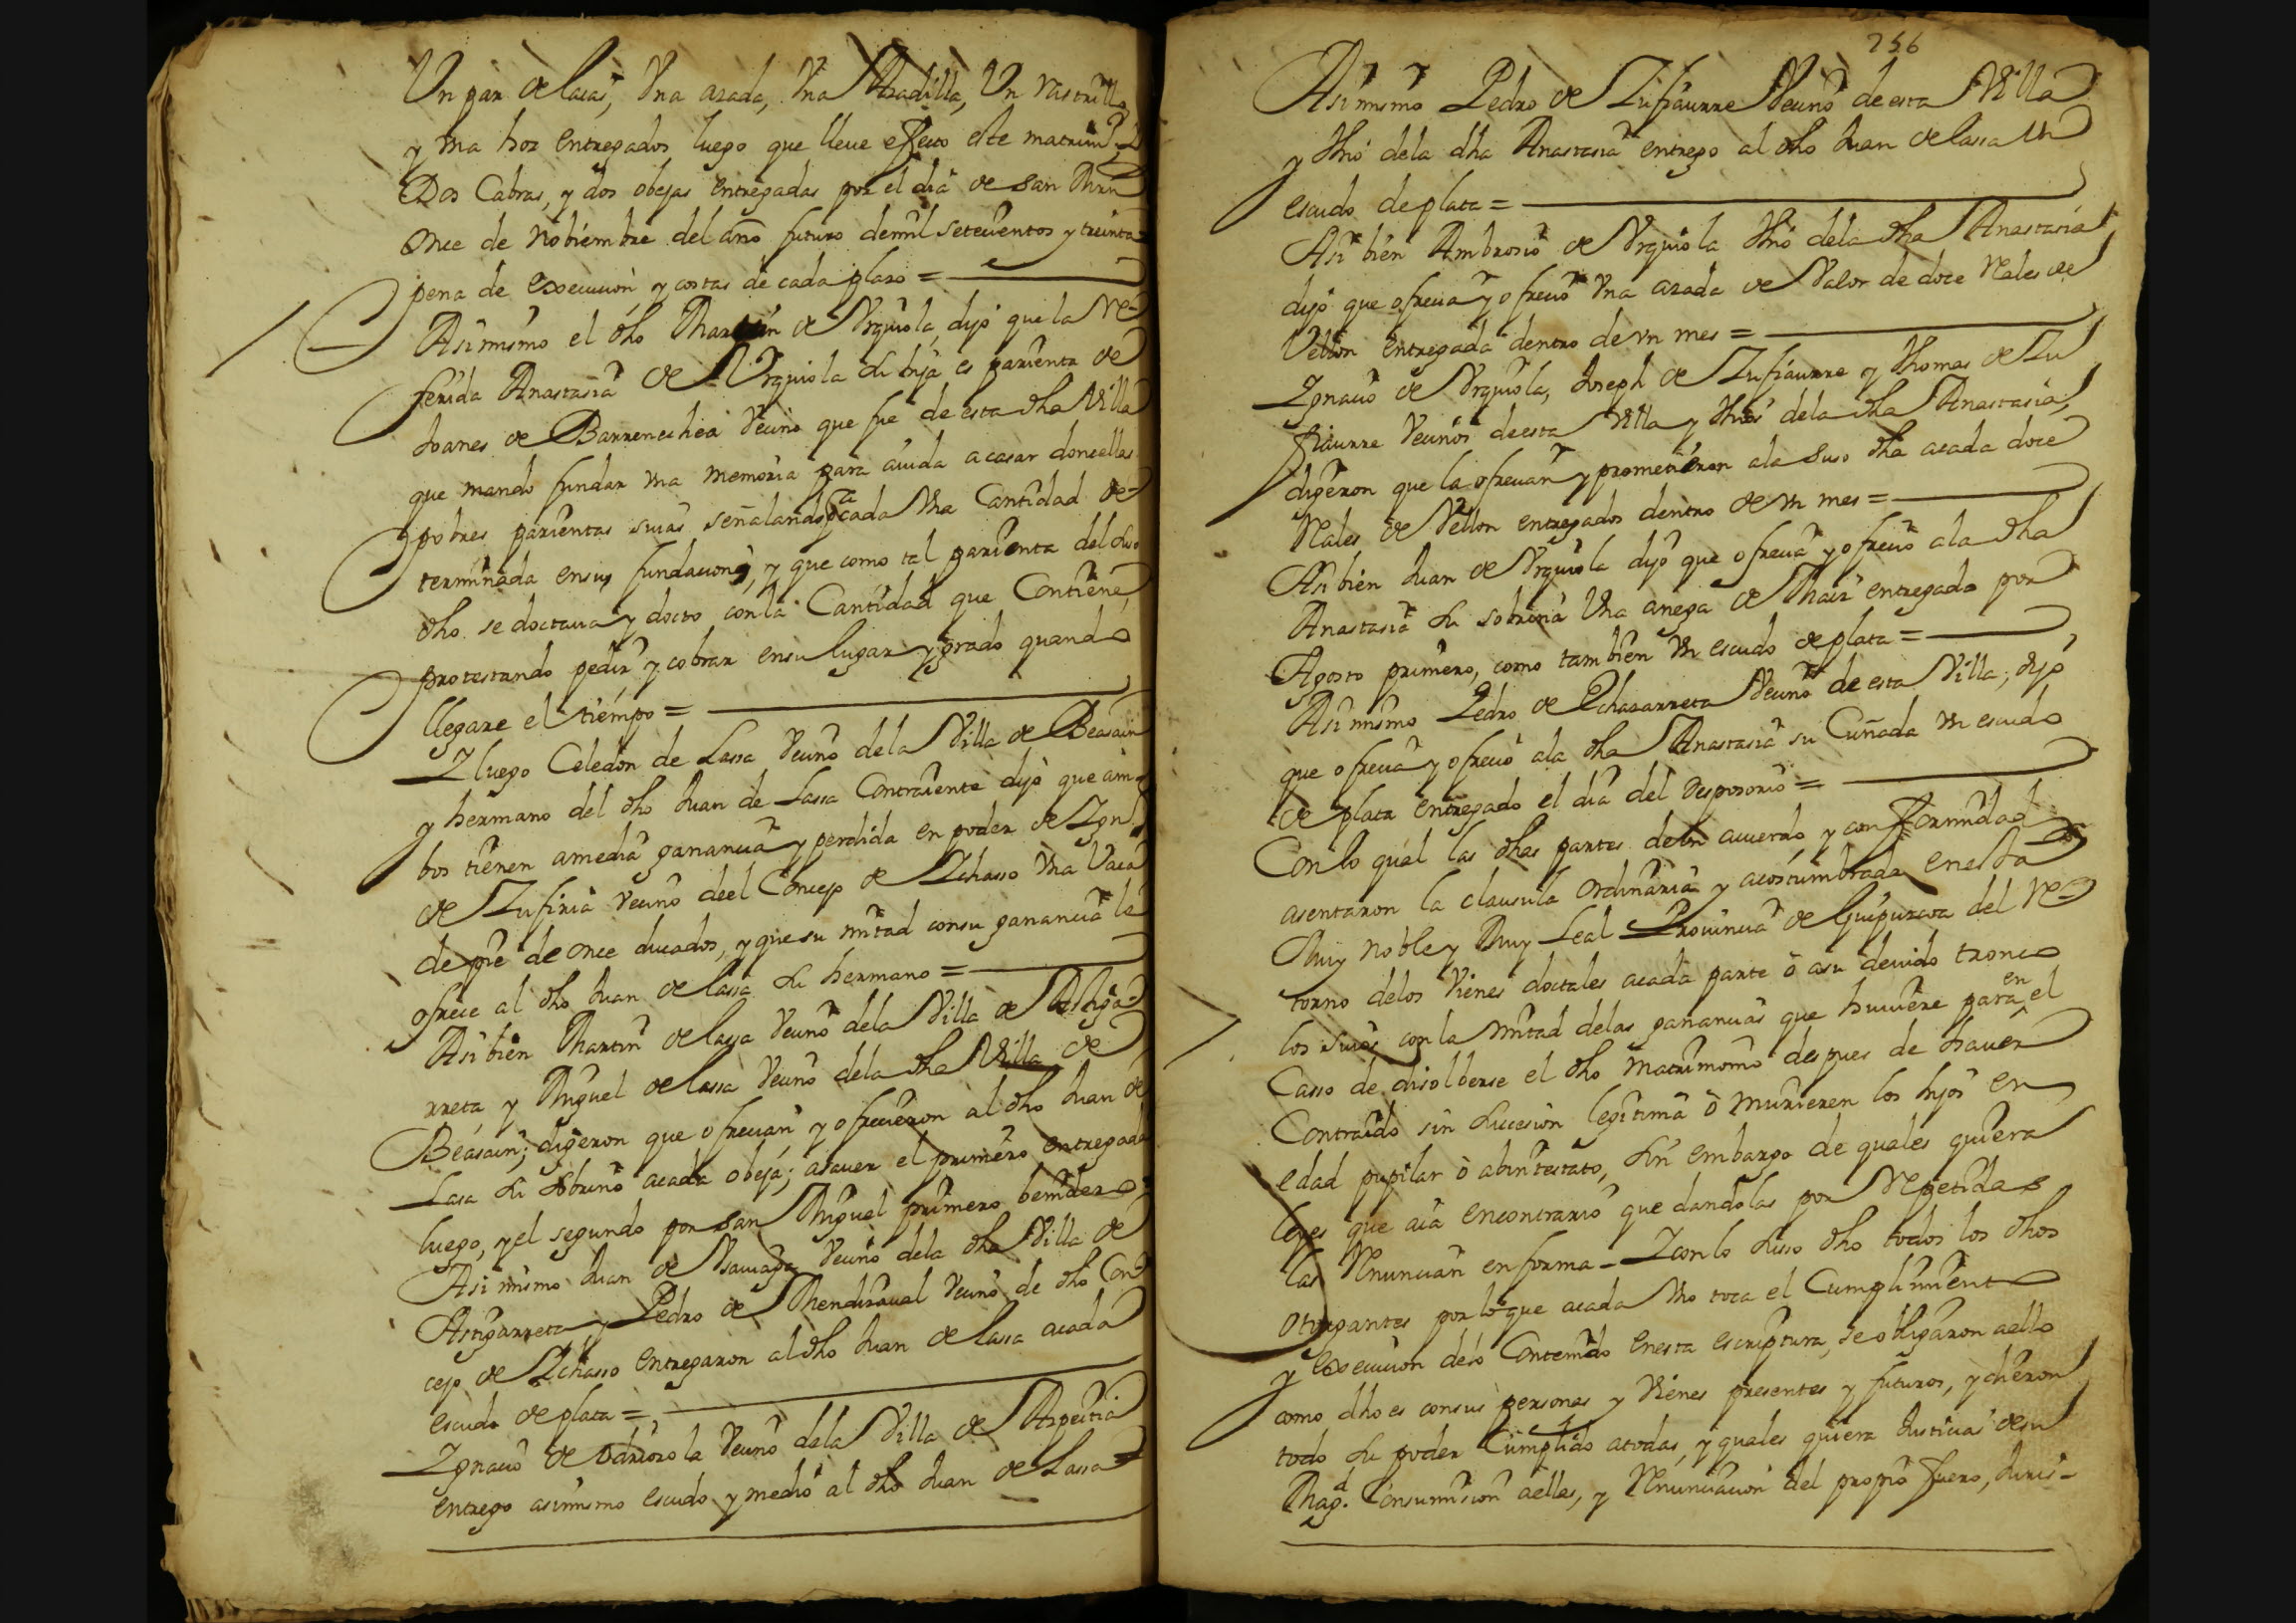 Un par de laias, Una azada, Una Azadilla, Un rastrillo
y una hoz entregados luego que lleue efecto este matrim.º
Dos Cabras, y dos obejas entregadas por el dia de san Mrn
Once de Nobiembre del año futuro de mil setecientos y treinta
pena de execucion y costas de cada plazo =
Asi mismo el dho Martin de Vrquiola, dijo que la re-
ferida Anastasia de Vrquiola su hija es parienta de
Joanes de Barrenechea Vecino que fue de esta dha Villa
que mando fundar una memoria para aiuda a casar doncellas
pobres parientas suias señalando pa cada una Cantidad de-
terminada en su fundacion, y que como tal parienta del suso
dho se doctaua y docto con la Cantidad que Contiene,
protestando pedir y cobrar en su lugar y grado quando
llegare el tiempo =
Y luego Celedon de Lassa Vecino de la Villa de Beasain
y hermano del dho Juan de Lassa Contraiente dijo que am-
bos tienen a media ganancia y perdida en poder de Ign.º
de Zufiria vecino del Concejo de Ichasso una Vaca
de pie de once ducados, y que su mitad con su ganancia le
ofrece al dho Juan de lassa su hermano =
Asi bien Martin de lassa Vecino de la Villa de Astiga-
rreta, y Miguel de lassa Vecino de la dha Villa de
Beasain; dijeron que ofrecian y ofrecieron al dho Juan de
Lasa su sobrino a cada obeja; a saver el primero entregada
luego, y el segundo por san Miguel primero benidero
Asi mismo Juan de Vecino de la dha Villa de
Astigarreta y Pedro de Mendizaual Vecino de dho Con-
cejo de Ichasso entregaron al dho Juan de lassa a cada
escudo de plata =
Ignacio de Odriozola Vecino de la Villa de Azpeitia
entrego asimismo escudo y medio al dho Juan de Lassa =
256
Asi mismo Pedro de Zufiaurre Vecino de esta Villa
y Hno de la dha Anastasia entrego al dho Juan de lassa Un
escudo de plata =
Asi bien Ambrosio de Vrquiola Hno de la dha Anastasia
dijo que ofrecia y ofrecio Una azada de Valor de doce Rales de
Vellon entregada dentro de un mes =
Ignacio de Vrquiola, Joseph de Zufiaurre y Thomas de Zu
fiaurre Vecinos de esta Villa y Hnos de la dha Anastasia,
dijeron que la ofrecian y prometieron a la suso dha a cada doce
Rales de Vellon entregados dentro de un mes =
Asi bien Juan de Vrquiola dijo que ofrecia y ofrecio a la dha
Anastasia su sobrina Una anega de Maiz entregada por
Agosto primero, como tambien Un escudo de plata =
Asi mismo Pedro de Echazarreta Vecino de esta Villa; dijo
que ofrecia y ofrecio a la dha Anastasia su Cuñada un escudo
de plata entregado el dia del desposorio =
Con lo qual las dhas partes de un acuerdo, y conformidad
asentaron la clausula ordinaria y acostumbrada en esta
Muy Noble y Muy Leal Prouincia de Guipuzcoa del Re-
torno de los Vienes doctales a cada parte ò a su deuido tronco
los suios con la mitad de las ganancias que huuiere para en el
Casso de disolberse el dho matrimonio despues de hauer
Contraido sin sucesion legitima ò murieren los hijos en
edad pupilar ò abintestato, sin embargo de quales quiera
leyes que aia en contrario que dandolas por Repetidas
las Renuncian en forma - Y con lo susso dho todos los dhos
otorgantes por lo que a cada uno toca el Cumplimiento
y execucion de lo Contenido en esta escriptura, se obligaron a ello
como dho es con sus personas y Vienes presentes y futuros, y dieron
todo su poder Cumplido a todas, y quales quiera Justicias de su
Magd. Con sumision a ellas, y Renunciacion del propio fuero, Juris-